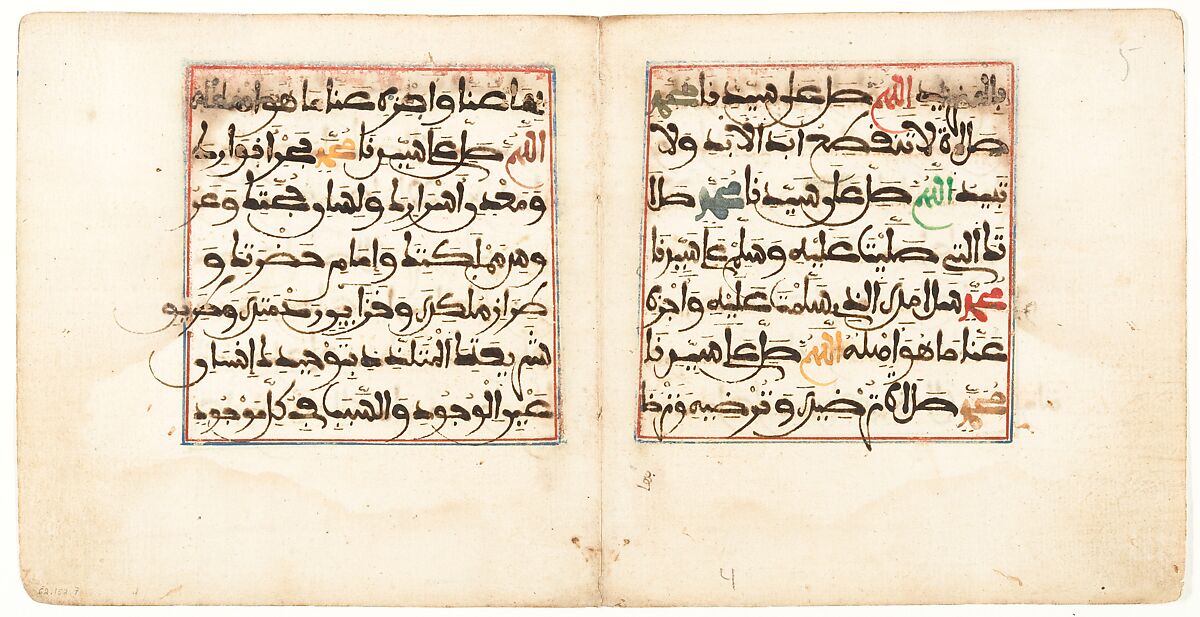 5
بالمزيد اللهم صل على سيدنا محمد
صلاة لا تنقطع ابد الابد ولا
تبيد اللهم صل على سيدنا محمد صلا
تك التي صليت عليه وسلم على سيدنا
محمد سلامك الذي سلمت عليه واجزه
عنا ما هو اهله اللهم صل على سيدنا
محمد صلاة ترضيك وترضيه وترضى
4
بها عنا واجزه عنا ما هو اهله
اللهم صل على سيدنا محمد بحر انوارك
ومعدن اسرارك ولسان حجتك وعر
وس مملكتك وامام حضرتك و
طراز ملكك وخزاين رحمتك وطريق
شريعتك المتلذذ بتوحيدك انسان
عين الوجود والسبب في كل موجود
62.152.7